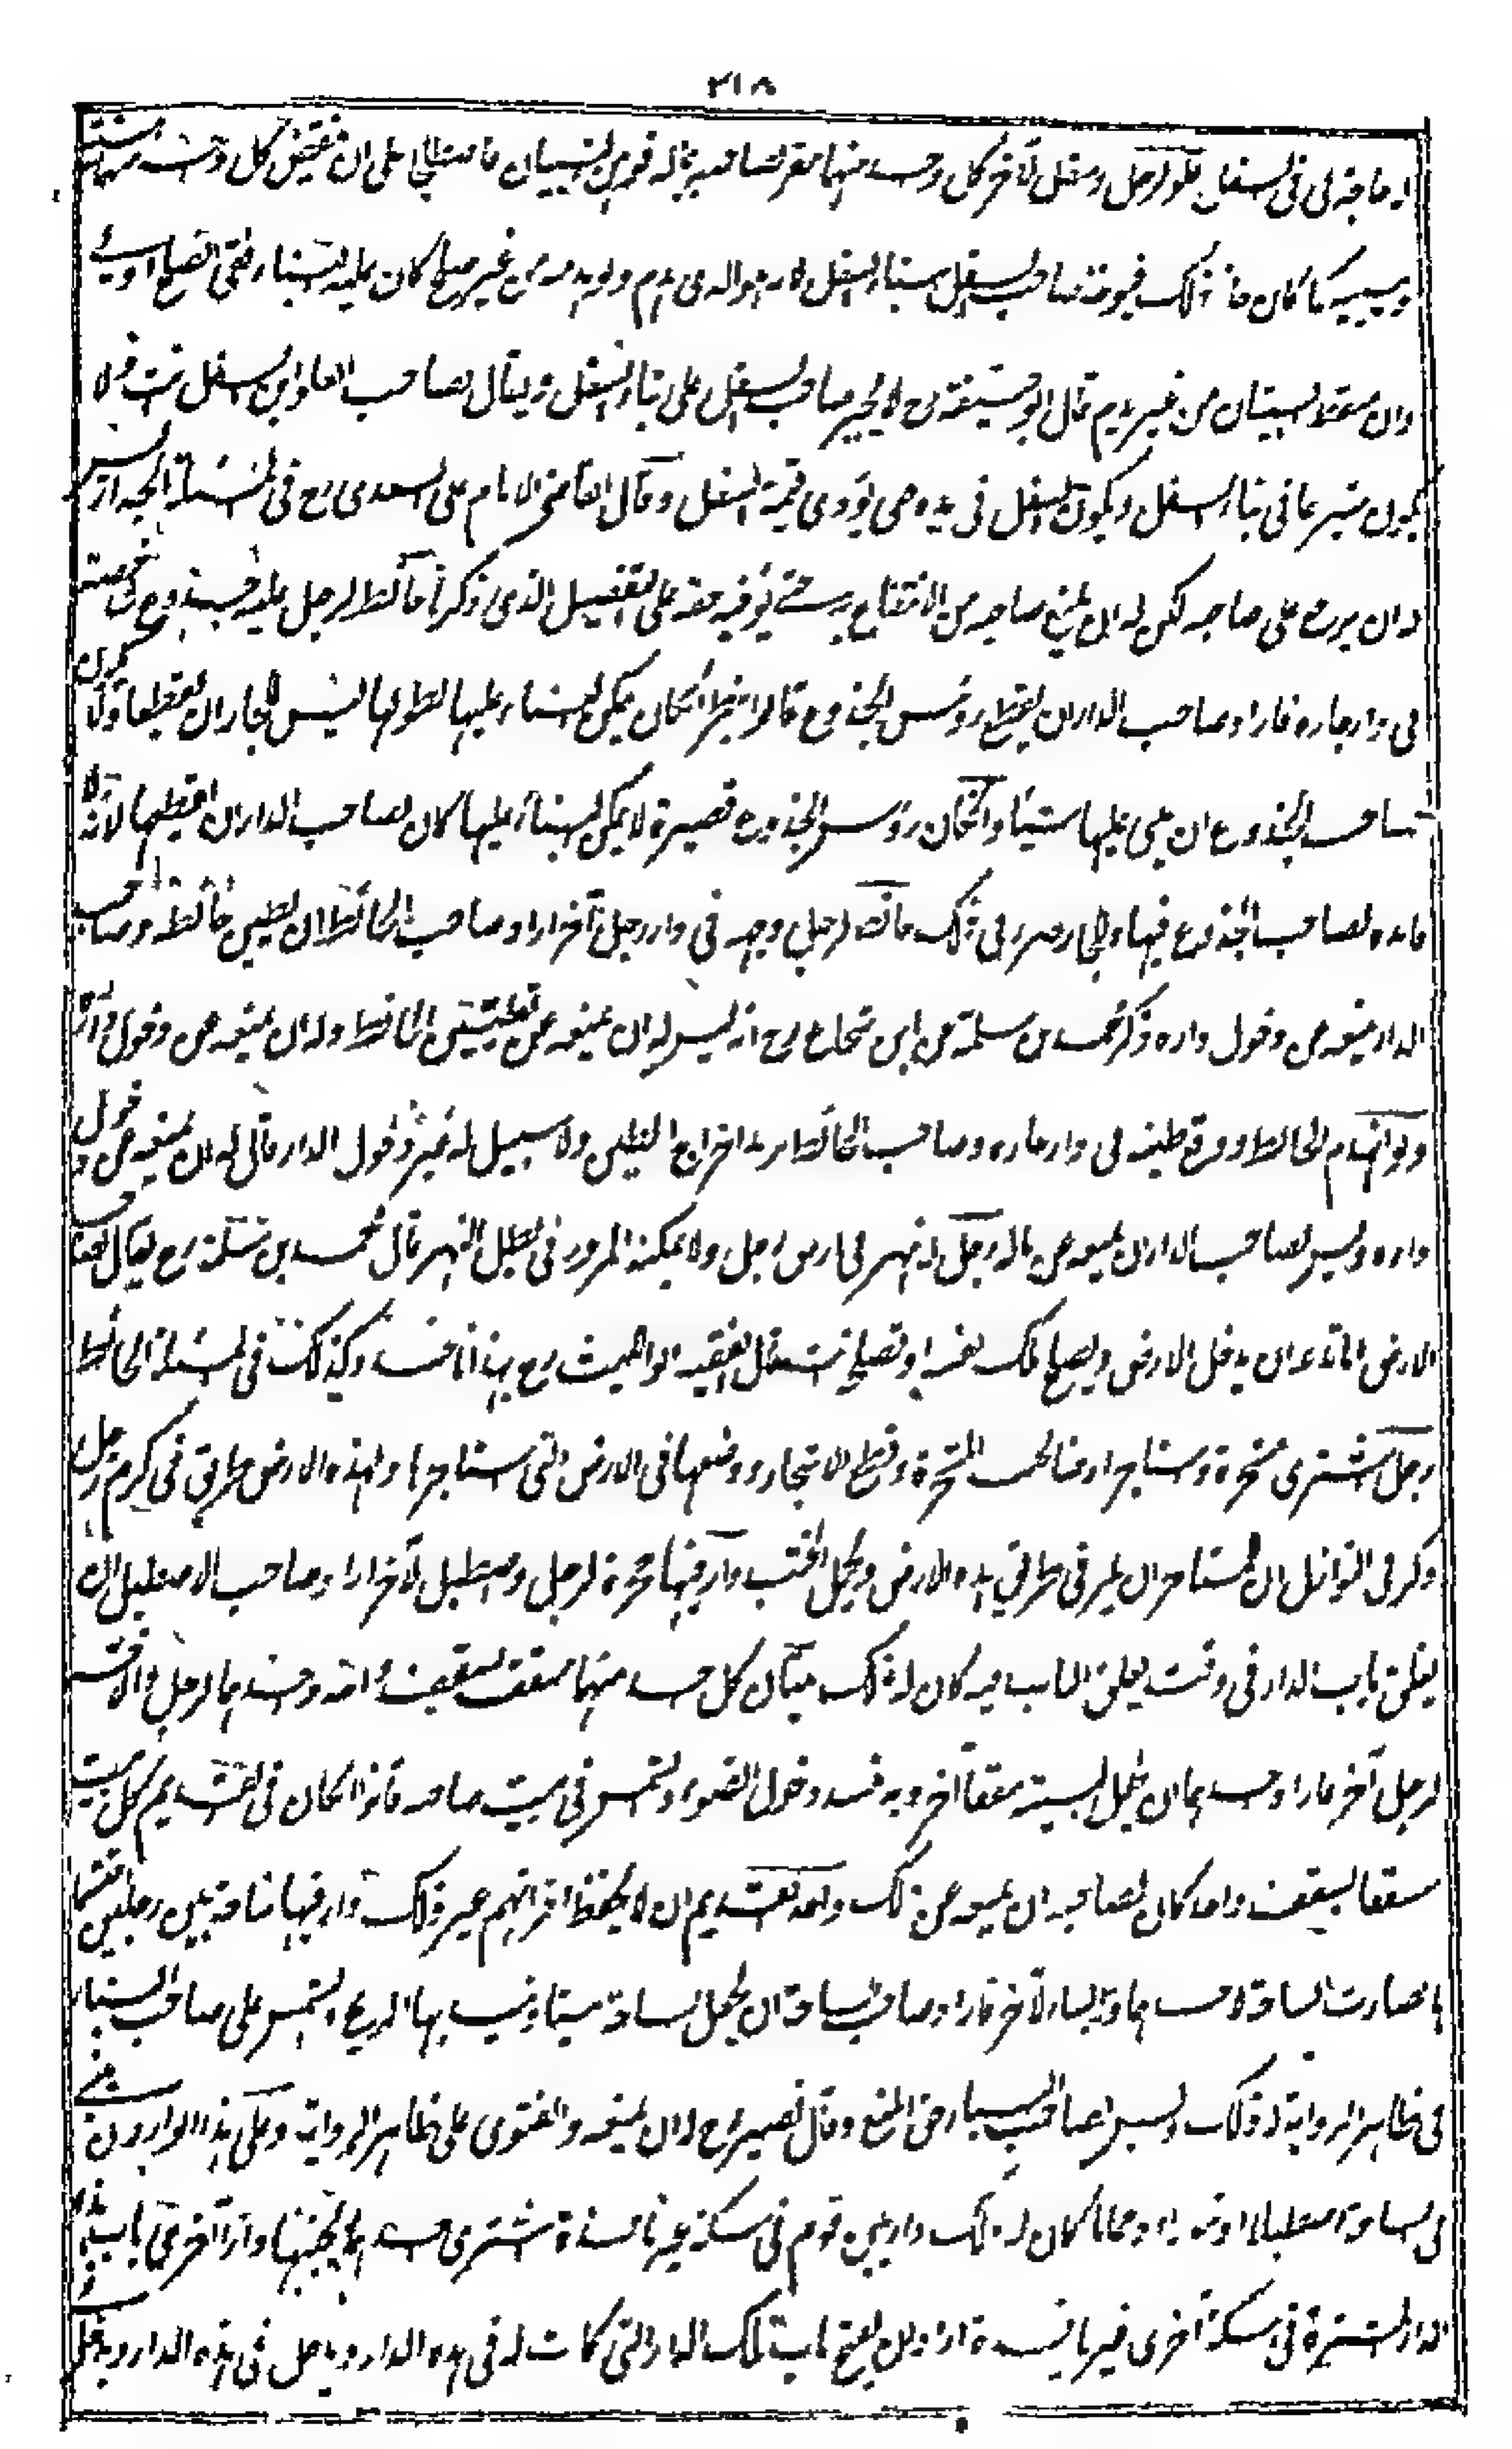 ٢١٨
لا حاجة لى فى السفل علو لرجل وسفل لآخر كل واحد منهما مقر لصاحبه بماله فوهى البنيان فاصطلحا على ان ينقض كل واحد منهما
ويبنيه كما كان فان ذلك فيؤخذ صاحب السفل ببناء السفل لانه هو الذى هدم ولو هدمه من غير صلح كان عليه البناء ففى الصلح اولى
وان سقط البيتان من غير هدم قال ابو حنيفة رح لا يجبر صاحب السفل على بناء السفل ويقال لصاحب العلو ابن السفل انت ولا
يكون متبرعا فى بناء السفل ويكون السفل فى يده حتى يؤدى قيمة السفل وقال القاضى الامام على السعدى رح فى المسئلة الجدار ليس
له ان يرجع على صاحبه لكن له ان يمنع صاحبه من الانتفاع به حتى يوفيه حقه على التفصيل الذى ذكرنا حائط لرجل عليه جذوع شاخصة
فى دار جاره فاراد صاحب الدار ان يقطع رؤس الجذوع قالوا ينظر ان كان يمكن البناء عليها لطولها ليس للجار ان يقطعها ولا يكون
لصاحب الجذوع ان يبنى عليها شيئا وان كان رؤس الجذوع قصيرة لا يمكن البناء عليها كان لصاحب الدار ان يقطعها لانه لا
فائدة لصاحب الجذوع فيها وللجار ضرر فى ذلك حائط لرجل وجهه فى دار رجل آخر اراد صاحب الحائط ان يطين حائطه وصاحب
الدار يمنعه من دخول داره ذكر محمد بن سلمة عن ابن شجاع رح انه ليس له ان يمنعه من تطيين الحائط وله ان يمنعه من دخول داره
ولو انهدم الحائط ووقع طينه فى دار جاره وصاحب الحائط يريد اخراج الطين ولا سبيل له غير دخول الدار قال له ان يمنعه من دخول
داره وليس لصاحب الدار ان يمنعه من ماله رجل له نهر فى ارض رجل ولا يمكنه المرور فى بطن النهر قال محمد بن سلمة رح يقال لصاحب
الارض اما تدعه ان يدخل الارض ويصلح ملك نفسه او تصلح انت قال الفقيه ابو الليث رح بهذا ناخذ وكذلك فى مسئلة الحائط
رجل اشترى شجرة واستاجر ارضا لحمل الشجرة وقطع الاشجار ووضعها فى الارض التى استاجرها ولهذه الارض طريق فى كرم رجل
ذكر فى النوازل ان للمستاجر ان يمر فى طريق هذه الارض ويحمل الخشب دار فيها حجرة لرجل واصطبل لآخر اراد صاحب الاصطبل ان
يغلق باب الدار فى وقت يغلق الباب فيه كان له ذلك بيتان كل واحد منهما مسقف بسقف واحد احدهما لرجل والآخر
لرجل آخر فاراد احدهما ان يجعل لبيته سقفا آخر وبه يفسد دخول الضوء والشمس فى بيت صاحبه قالوا ان كان فى القديم كل بيت
مسقفا بسقف واحد كان لصاحبه ان يمنعه من ذلك وحد القديم ان لا يحفظ اقرانهم غير ذلك دار فيها ساحة بين رجلين اقتسما
ها فصارت الساحة لاحدهما والبناء للآخر فاراد صاحب الساحة ان يجعل الساحة بيتا ويسد بها الريح والشمس على صاحب البناء
فى ظاهر الرواية له ذلك وليس لصاحب البناء حق المنع وقال نصير رح له ان يمنعه والفتوى على ظاهر الرواية وعلى هذا لو اراد ان يبنى
فى الساحة اصطبلا او تنورا او حماما كان له ذلك دار بين قوم فى سكة غير نافذة اشترى احدهم بجنبها دارا اخرى باب هذه
الدار المشتراة فى سكة اخرى غير نافذة اراد ان يفتح باب تلك الدار التى كانت له فى هذه الدار ويدخل فى هذه الدار ويدخل